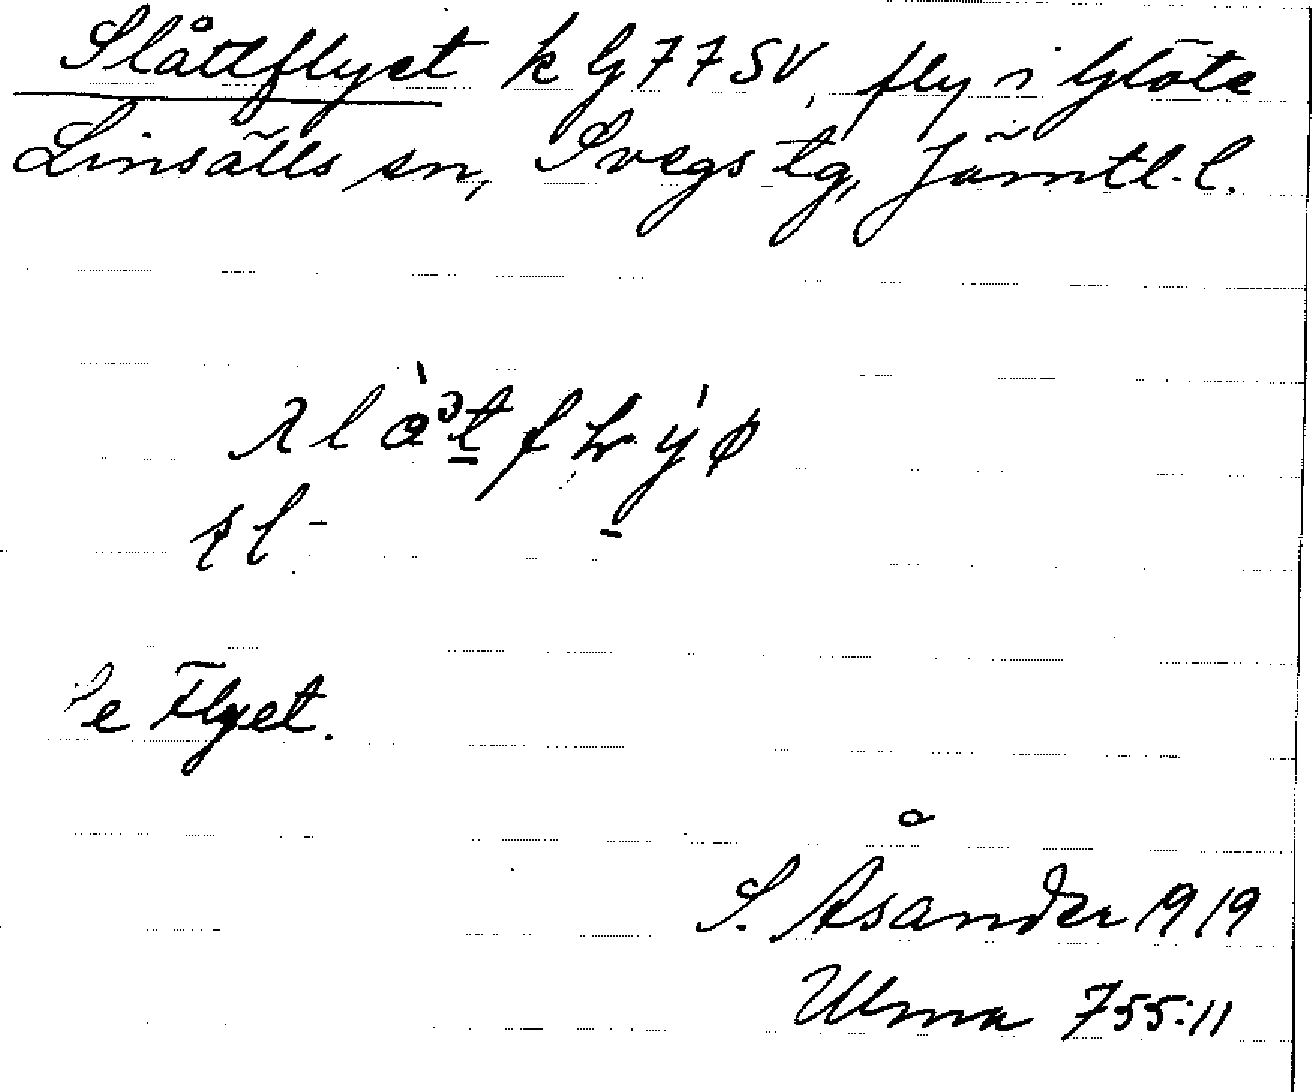 Slåttflyet k G 77 SV, fly i Glöte
Linsälls sn, Svegs tg, Jämtl. l.
Se Flyet.
S. Åsander 1919
Ulma 755:11